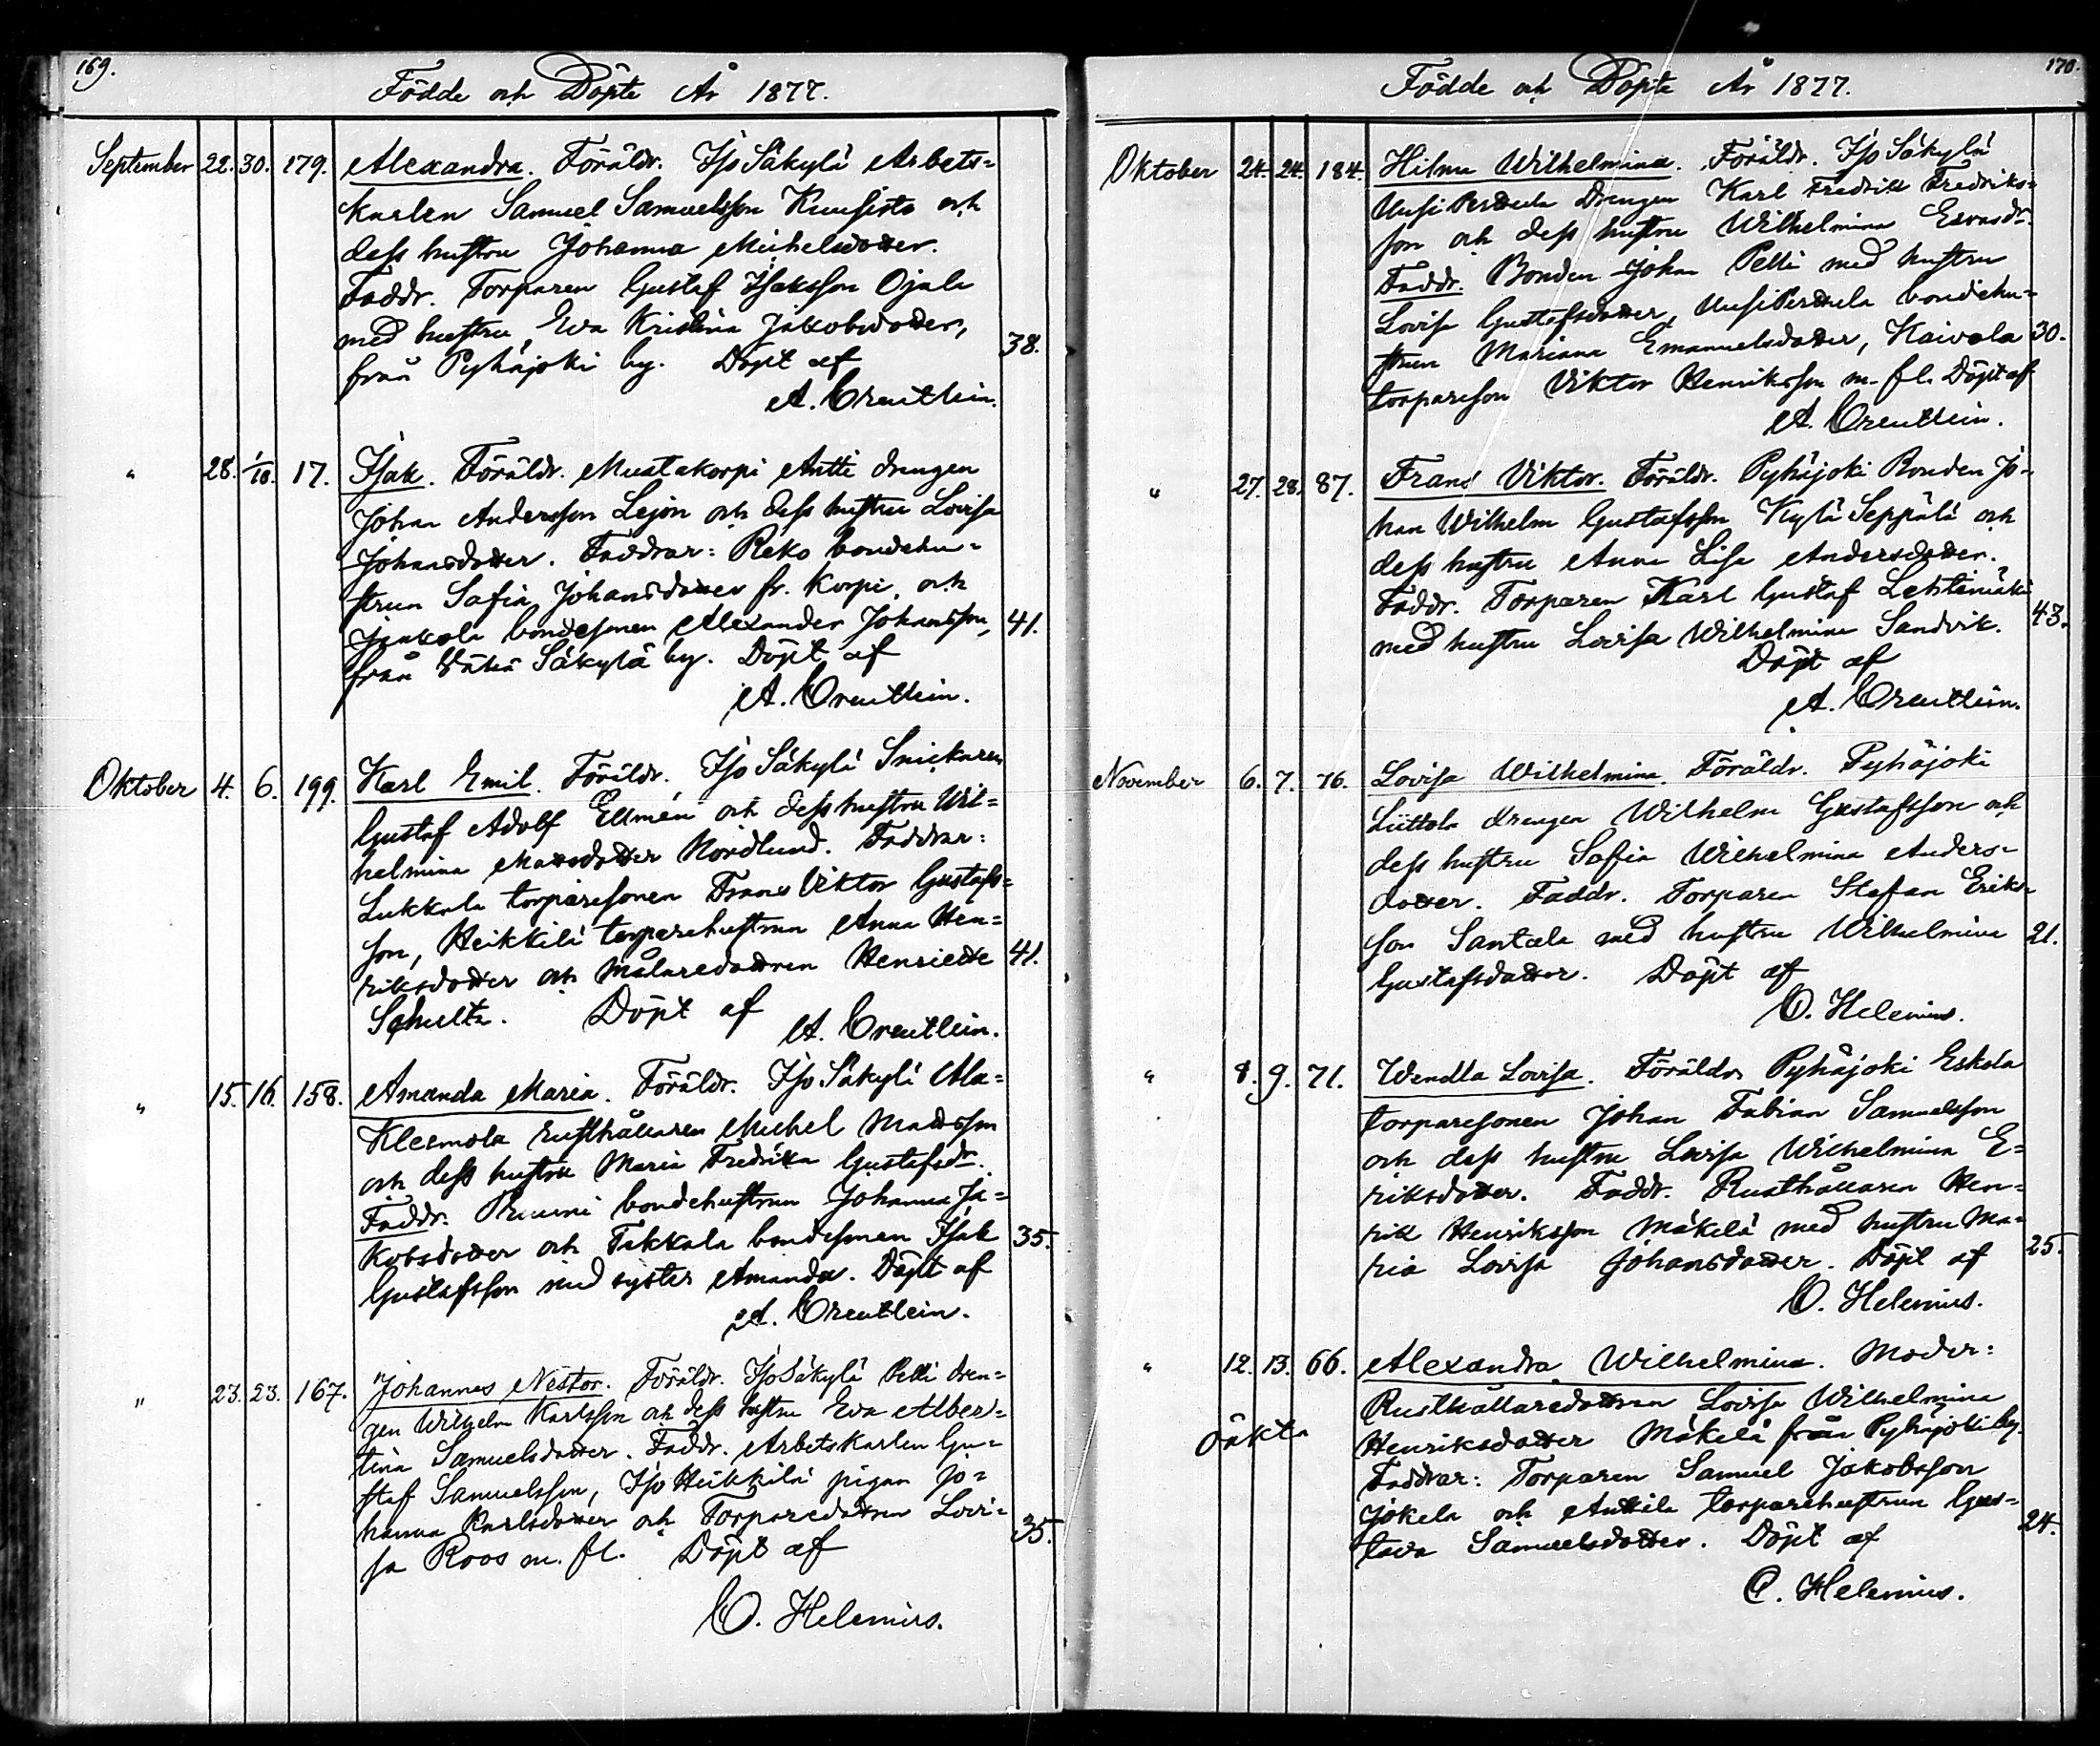 169.
Födde och Döpte År 1877.
September 22. 30. 179. Alexandra. Föräldr. Iso Säkylä Arbets=
karlen Samuel Samuelsson Kuusisto och
dess hustru Johanna Michelsdotter.
Faddr. Torparen Gustaf Isaksson Ojala
med hustru Eva Kristina Jakobsdotter,
från Pyhäjoki by. Döpt af 38.
A. Creutlein.
" 28. 1/10. 17. Isak. Föräldr. Mustakorpi Antti drengen
Johan Andersson Lejon och dess hustru Lovisa
Johansdotter. Faddrar: Reko bondehu=
strun Safia Johansdotter fr. Korpi, och
Jaakola bondesonen Alexander Johansson, 41.
från Vähä Säkylä by. Döpt af
A. Creutlein.
Oktober 4. 6. 199. Karl Emil. Föräldr. Iso Säkylä Snickaren
Gustaf Adolf Ellmén och dess hustru Wil=
helmina Mattsdotter Nordlund. Faddrar:
Lukkala torparesonen Frans Viktor Gustafs=
son, Heikkilä torparehustrun Anna Hen=
riksdotter och Målaredottren Henriette 41.
Schultz. Döpt af
A. Creutlein.
" 15. 16. 158. Amanda Maria. Föräldr. Iso Säkylä Ala=
Kleemola rusthållaren Michel Mattsson
och dess hustru Maria Fredrika Gustafsdr.
Faddr. Pruuni bondehustrun Johanna Ja=
kobsdotter och Takkala bondesonen Isak 35.
Gustafsson med syster Amanda. Döpt af
A. Creutlein.
" 23. 23. 167. Johannes Nestor. Föräldr. Iso Säkylä Pelli dren=
gen Wilhelm Karlsson och dess hustru Eva Alber=
tina Samuelsdotter. Faddr. Arbetskarlen Gu=
staf Samuelsson, Iso Heikkilä pigan Jo=
hanna Karlsdotter och Torparedottren Lovi=
sa Roos m. fl. Döpt af 35.
O. Helenius.
170.
Födde och Döpte År 1877.
Oktober 24. 24. 184. Hilma Wilhelmina. Föräldr. Iso Säkylä
Uusi Perttula Drengen Karl Fredrik Fredriks=
son och dess hustru Wilhelmina Esrasdr.
Faddr. Bonden Johan Pelli med hustru
Lovisa Gustafsdotter, Uusi Perttula bondehu=
strun Mariana Emanuelsdotter, Kaivola 30.
torpareson Viktor Henriksson m. fl. Döpt af
A. Creutlein.
" 27. 28. 87. Frans Viktor. Föräldr. Pyhäjoki Bonden Jo=
han Wilhelm Gustafsson Kylä Seppälä och
dess hustru Anna Lisa Andersdotter.
Faddr. Torparen Karl Gustaf Lehtimäki
med hustru Lovisa Wilhelmina Sandvik. 43.
Döpt af
A. Creutlein.
November 6. 7. 76. Lovisa Wilhelmina. Föräldr. Pyhäjoki
Liittola drengen Wilhelm Gustafsson och
dess hustru Safia Wilhelmina Anders=
dotter. Faddr. Torparen Stefan Eriks=
son Santala med hustru Wilhelmina 21.
Gustafsdotter. Döpt af
O. Helenius.
" 8. 9. 71. Wendla Lovisa. Föräldr. Pyhäjoki Eskola
torparesonen Johan Fabian Samuelsson
och dess hustru Lovisa Wilhelmina E=
riksdotter. Faddr. Rusthållaren Hen=
rik Henriksson Mäkelä med hustru Ma=
ria Lovisa Johansdotter. Döpt af 25.
O. Helenius.
" 12. 13. 66. Alexandra Wilhelmina. Moder:
Rusthållaredottren Lovisa Wilhelmina
oäkta Henriksdotter Mäkelä från Pyhäjoki by.
Faddrar: Torparen Samuel Jakobsson
Jokela och Anttila torparehustrun Gus=
tava Samuelsdotter. Döpt af 24.
O. Helenius.